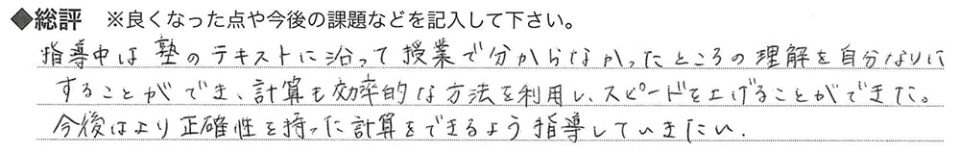 ◆総評 ※良くなった点や今後の課題などを記入して下さい。
指導中は塾のテキストに沿って授業で分からなかったところの理解を自分なりに
することができ、計算も効率的な方法を利用し、スピードを上げることができた。
今後はより正確性を持った計算をできるよう指導していきたい.